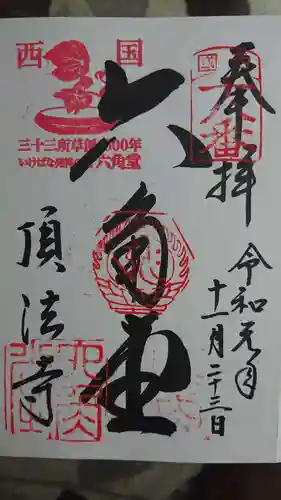 奉拝
令和元年
十一月二十三日
六角堂
頂法寺
西国
三十三所草創1300年
いけばな発祥の地 六角堂